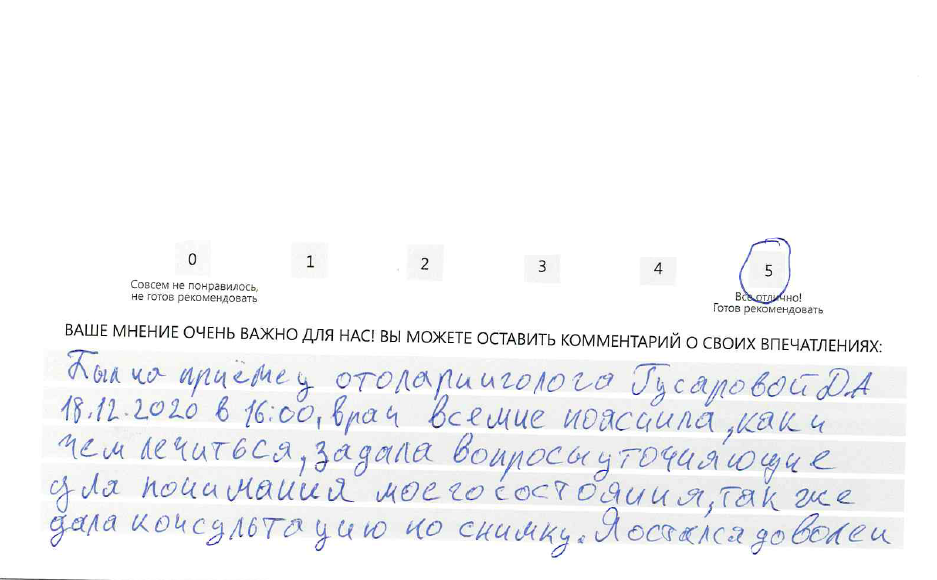 0 1 2 3 4 5
Совсем не понравилось, Все отлично!
не готов рекомендовать Готов рекомендовать
ВАШЕ МНЕНИЕ ОЧЕНЬ ВАЖНО ДЛЯ НАС! ВЫ МОЖЕТЕ ОСТАВИТЬ КОММЕНТАРИЙ О СВОИХ ВПЕЧАТЛЕНИЯХ:
Был на приёме у отоларинголога Гусаровой Д.А
18.12.2020 в 16:00, врач все мне пояснила, как и
чем лечиться, задала вопросы уточняющие
для понимания моего состояния, так же
дала консультацию по снимку. Я остался доволен